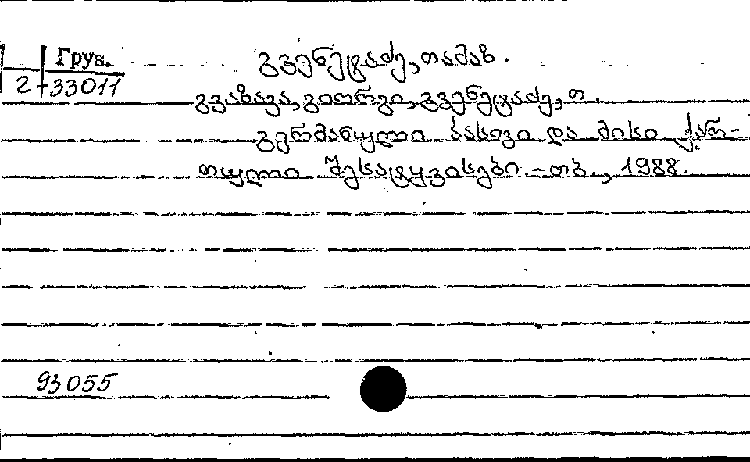 Груз.
2-33011
გვენეტაძე, თამაზ.
გვაზავა, გიორგი, გვენეტაძე, თ.
გერმანული ბასივი და მისი ქარ-
თული შესატყვისები. - თბ., 1988.
93055